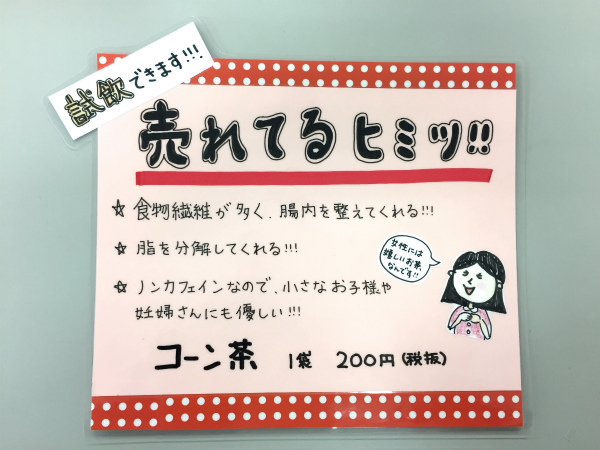 試飲できます!!!
売れてるヒミツ!!
☆ 食物繊維が多く、腸内を整えてくれる!!!
☆ 脂を分解してくれる!!!
☆ ノンカフェインなので、小さなお子様や
妊婦さんにも優しい!!!
女性には
嬉しいお茶
なんです!!
コーン茶 1袋 200円(税抜)